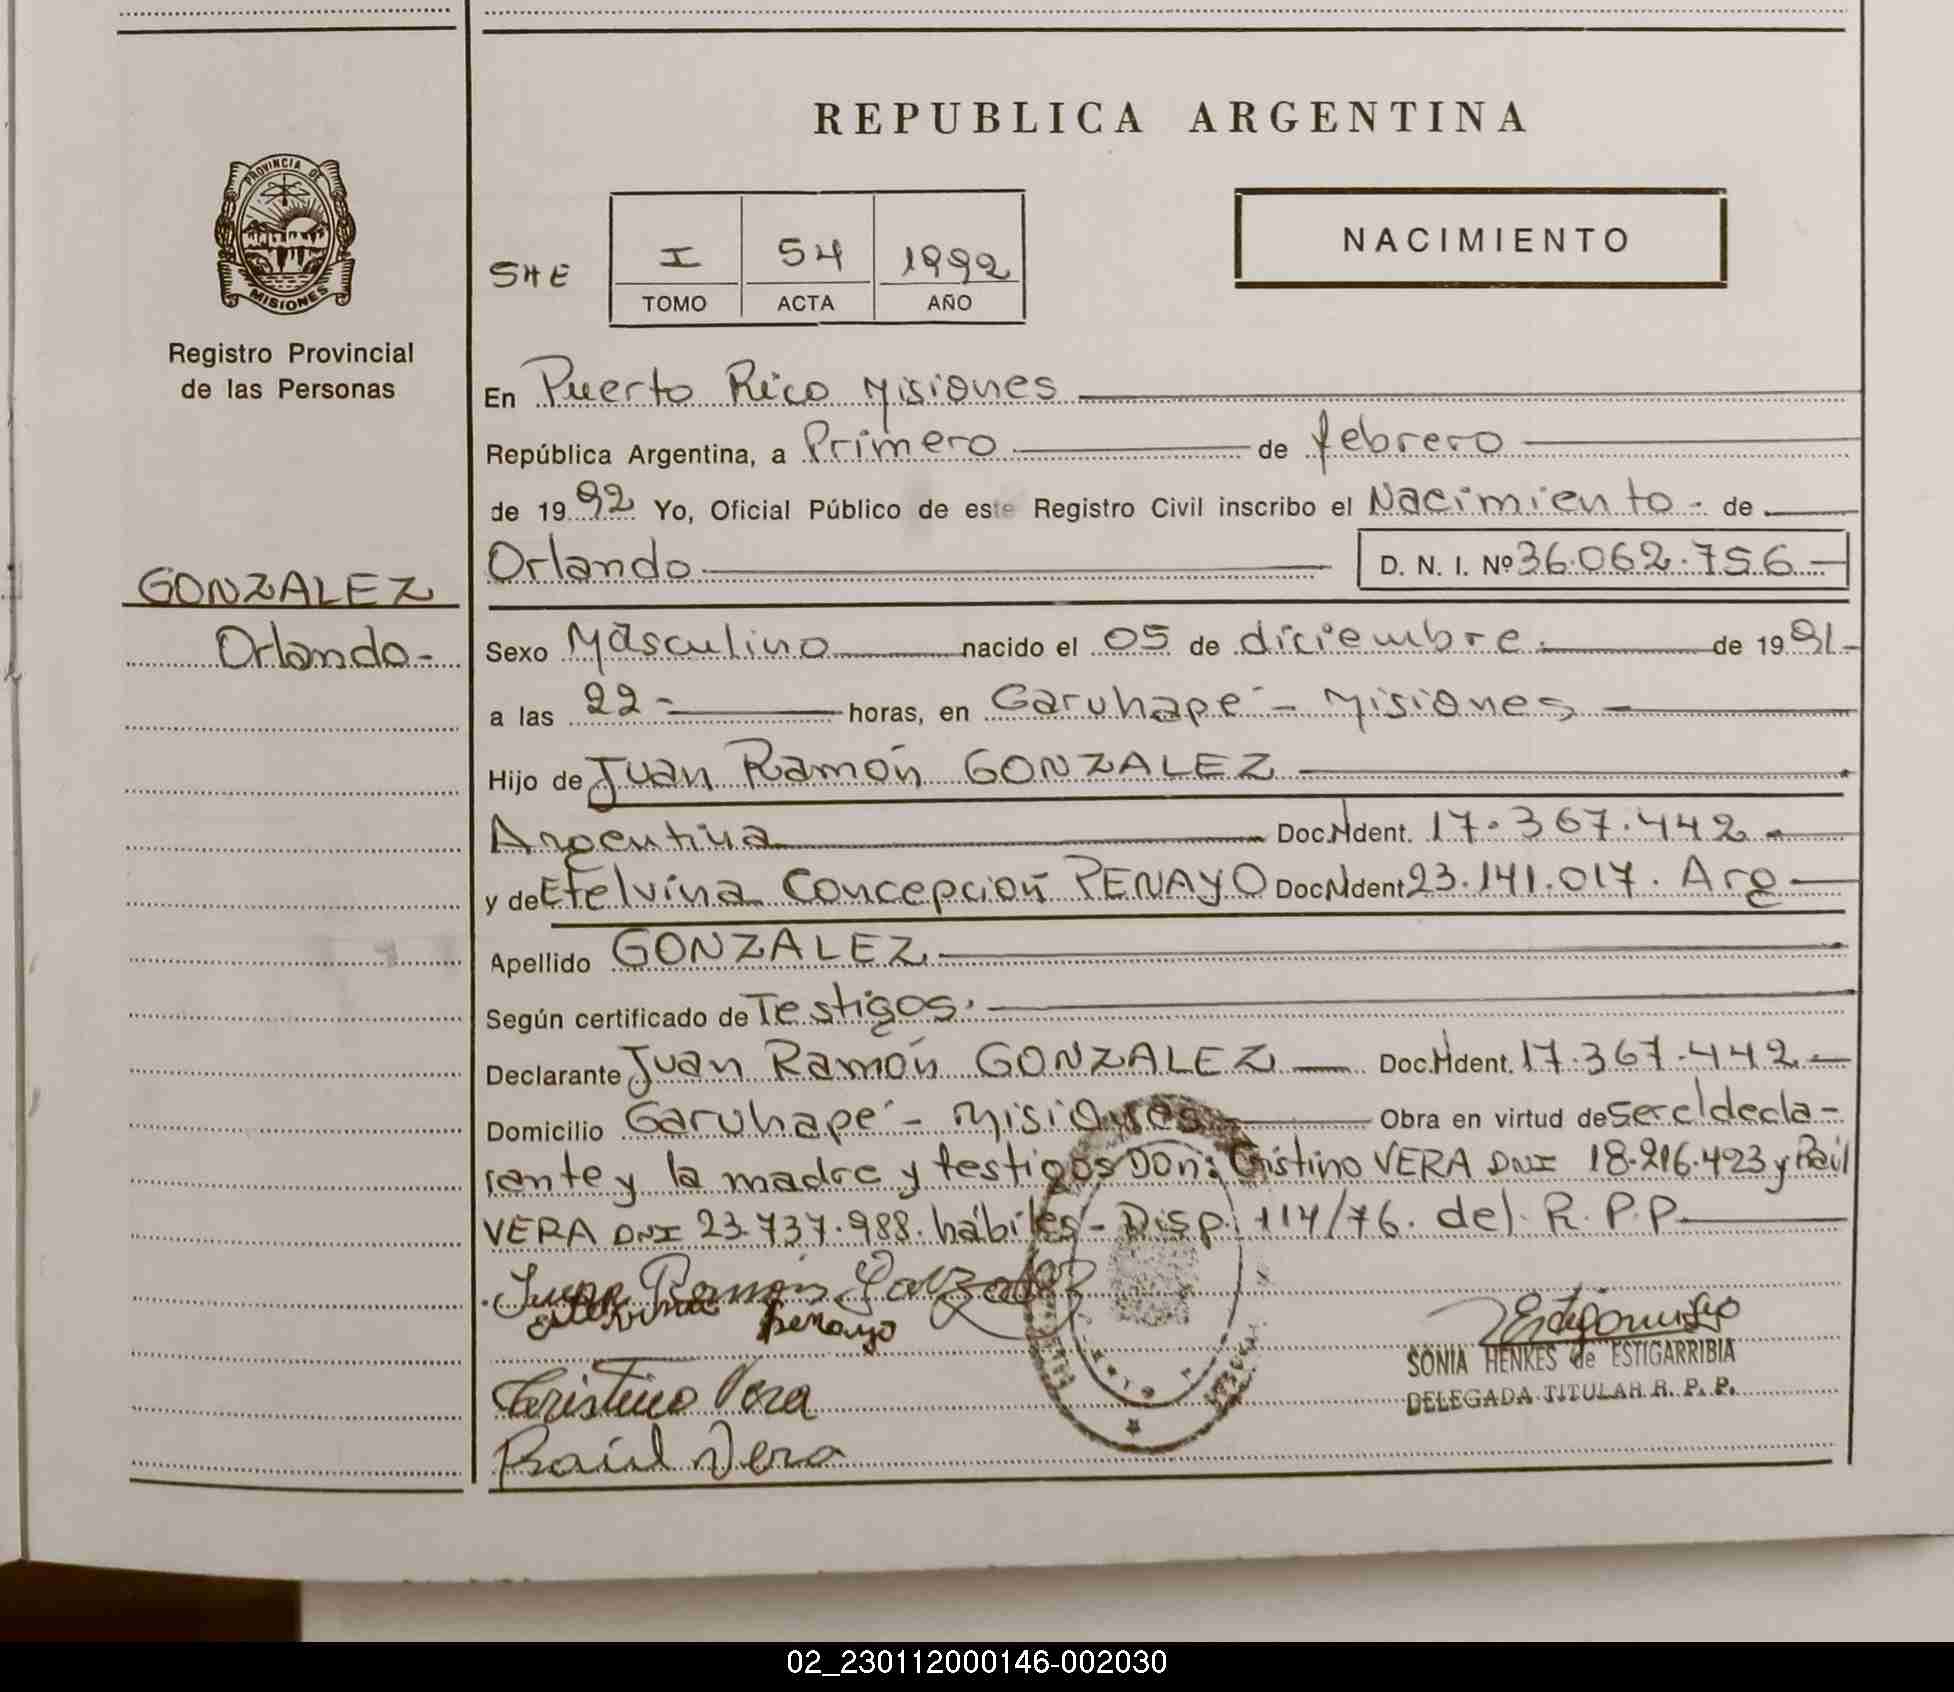 REPUBLICA ARGENTINA
PROVINCIA DE
MISIONES
Registro Provincial
de las Personas
SHE
I 54 1992
TOMO ACTA AÑO
NACIMIENTO
En Puerto Rico Misiones
República Argentina, a Primero de febrero
de 1992 Yo, Oficial Público de este Registro Civil inscribo el Nacimiento - de
Orlando D. N. I. Nº 36.062.756
GONZALEZ
Orlando -
Sexo Masculino nacido el 05 de diciembre de 1991 -
a las 22 - horas, en Garuhapé - Misiones
Hijo de Juan Ramón GONZALEZ
Argentina Doc. Ident. 17.367.442
y de Etelvina Concepción PENAYO Doc. Ident 23.141.017. Arg
Apellido GONZALEZ
Según certificado de Testigos.
Declarante Juan Ramón GONZALEZ Doc. Ident. 17.367.442
Domicilio Garuhapé - Misiones Obra en virtud de ser el decla-
rante y la madre y testigos Don: Cristino VERA DNI 18.216.423 y Raúl
VERA DNI 23.737.988. hábiles - Disp. 114/76. del R.P.P
Juan Ramón Gonzalez
Etelvina Penayo
SONIA HENKES de ESTIGARRIBIA
DELEGADA TITULAR R. P. P.
Cristino Vera
Raúl Vera
02_230112000146-002030